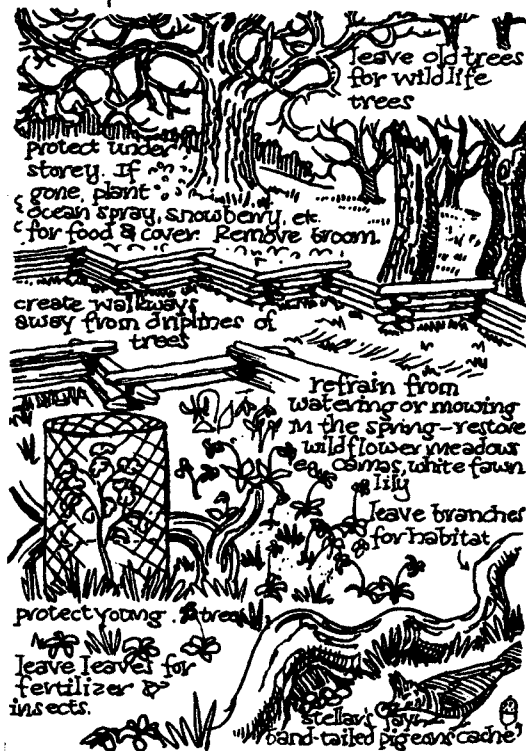 leave old trees
for wildlife
trees
protect under
storey. If
gone, plant
ocean spray, snowberry, etc.
for food & cover. Remove broom.
create walkways
away from driplines of
trees
refrain from
watering or mowing
in the spring-restore
wildflower meadows
eg. camas, white fawn
lily
leave branches
for habitat
protect young trees
leave leaves for
fertilizer &
insects.
stellar's jays
band-tailed pigeons cache